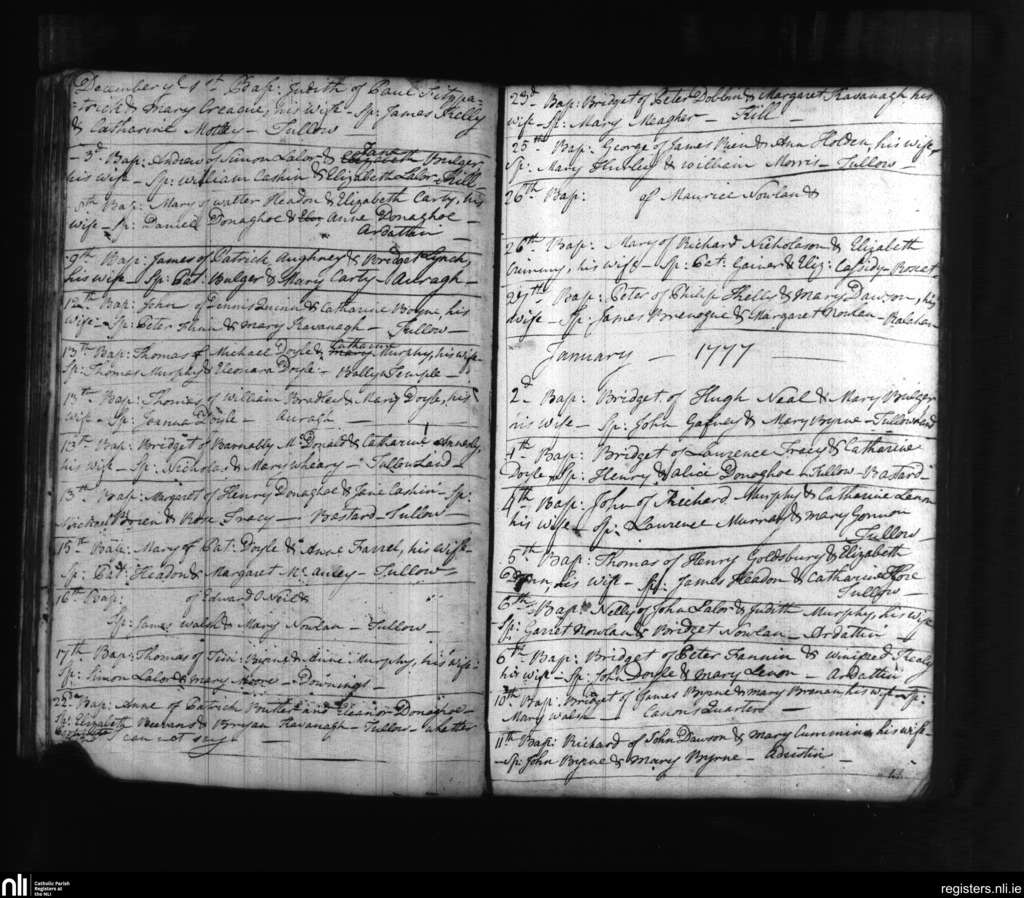 December ye 1st Bap: Judith of Paul Fitzpa-
-trick & Mary Creacie, his wife - Sp: James Kelly
& Catharine - Tullow
- 3d Bap: Andrew of Simon Lalor & Jane Bulger
his wife - Sp: William Cashin & Elizabeth Lalor - Kill
8th Bap: Mary of Walter Headon & Elizabeth Carty, his
wife - Sp: Daniel Donaghoe & Anne Donaghoe -
Ardattin
9th Bap: James of Patrick Aughney & Bridget Lynch,
his wife - Sp: Pat: Bulger & Mary Carty - Auragh -
12th Bap: John of Dennis Quinn & Catharine Byrne, his
wife - Sp: Peter & Mary Kavanagh - Tullow -
13th Bap: Thomas of Michael Doyle & Catharine Murphy, his wife -
Sp: Thomas Murphy & Eleonara Doyle - Ballyn Temple -
13th Bap: Thomas of William Bradley & Mary Doyle, his
wife - Sp: Joanna Doyle - Auragh -
13th Bap: Bridget of Barnaby Mc Donald & Catharine
his wife - Sp: Nicholas & Mary Wheary - Tullow Land -
13th Bap: Margaret of Henry Donaghoe & Jane Cashin - Sp:
Brien & Rose Tracy - Bastard - Tullow
15th Bap: Mary of Pat: Doyle & Anne Farrel, his wife -
Sp: Pat: Headon & Margaret Mc Auley - Tullow
16th Bap: of Edward O Neil &
Sp: James Walsh & Mary Nowlan - Tullow -
17th Bap: Thomas of Tim: Byrne & Anne Murphy, his wife -
Sp: Simon Lalor & Mary Moore - Downings -
22d Bap: Anne of Patrick Butler and Eleanor Donaghoe -
Sp: Elizabeth & Bryan Kavanagh - Tullow - whether
I can not say -
23d Bap: Bridget of Peter Dobbin & Margaret Kavanagh his
wife - Sp: Mary Meagher - Kill -
25th Bap: George of James Brien & Ann Holden, his wife,
Sp: Mary Hurley & William Morris - Tullow -
26th Bap: of Maurice Nowlan &
26th Bap: Mary of Richard Nicholson & Elizabeth
his wife - Sp: Pat: Gainer & Eliz: Cassidy - Roscat
27th Bap: Peter of Philip & Mary Dawson, his
wife - Sp: James & Margaret Nowlan - Rathshan
January - 1777 -
2d Bap: Bridget of Hugh Neal & Mary Bulger
his wife - Sp: John Gafney & Mary Byrne - Tullowland
4th Bap: Bridget of Laurence Tracy & Catharine
Doyle - Sp: Henry & Alice Donaghoe - Tullow - Bastard -
4th Bap: John of Richard Murphy & Catharine
his wife - Sp: Laurence Murray & Mary Connor
Tullow
5th Bap: Thomas of Henry Goldsbury & Elizabeth
his wife - Sp: James Headon & Catharine Hore
Tullow -
6th Bap: Nelly of John Lalor & Judith Murphy, his wife
Sp: Garret Nowlan & Bridget Nowlan - Ardattin -
6th Bap: Bridget of Peter Fannin & Winifred Healy
his wife - Sp: John Doyle & Mary Lenon - Ardattin
10th Bap: Bridget of James Byrne & Mary Brenan his wife - Sp:
Mary Walsh - Canon's Quarters -
11th Bap: Richard of John Dawson & Mary Cummins his wife -
- Sp: John Byrne & Mary Byrne -
nli
Catholic Parish
Registers at
the NLI
registers.nli.ie